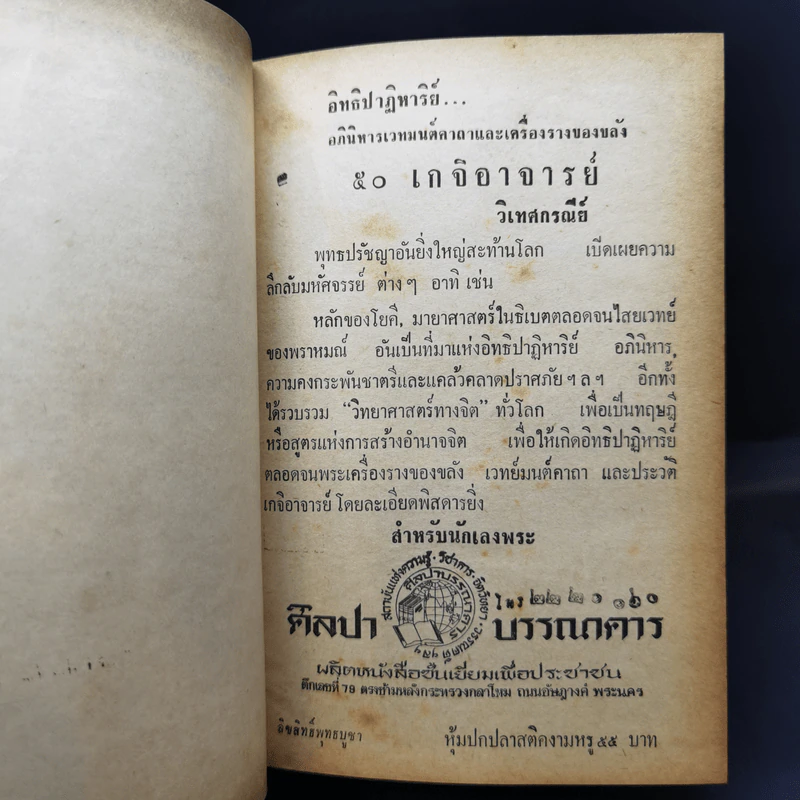 อิทธิปาฏิหาริย์...
อภินิหารเวทมนต์คาถาและเครื่องรางของขลัง
๕๐ เกจิอาจารย์
วิเทศกรณีย์
พุทธปรัชญาอันยิ่งใหญ่สะท้านโลก เบิดเผยความ
ลึกลับมหัศจรรย์ ต่างๆ อาทิ เช่น
หลักของโยคี, มายาศาสตร์ในธิเบตตลอดจนไสยเวทย์
ของพราหมณ์ อันเป็นที่มาแห่งอิทธิปาฏิหาริย์ อภินิหาร,
ความคงกระพันชาตรีและแคล้วคลาดปราศภัย ฯลฯ อีกทั้ง
ได้รวบรวม “วิทยาศาสตร์ทางจิต” ทั่วโลก เพื่อเป็นทฤษฎี
หรือสูตรแห่งการสร้างอำนาจจิต เพื่อให้เกิดอิทธิปาฏิหาริย์
ตลอดจนพระเครื่องรางของขลัง เวทย์มนต์คาถา และประวัติ
เกจิอาจารย์ โดยละเอียดพิสดารยิ่ง
สำหรับนักเลงพระ
สถาบันแห่งความรู้ · วิชาการ · จิตวิทยา · วรรณคดี ฯลฯ
ศิลปาบรรณาคาร
โทร ๒๒๒๐๑๖๐
ศิลปา บรรณาคาร
ผลิตหนังสือชั้นเยี่ยมเพื่อประชาชน
ตึกเลขที่ 78 ตรงข้ามหลังกระทรวงกลาโหม ถนนอัษฎางค์ พระนคร
ลิขสิทธิ์พุทธบูชา หุ้มปกปลาสติคงามหรู ๕๕ บาท